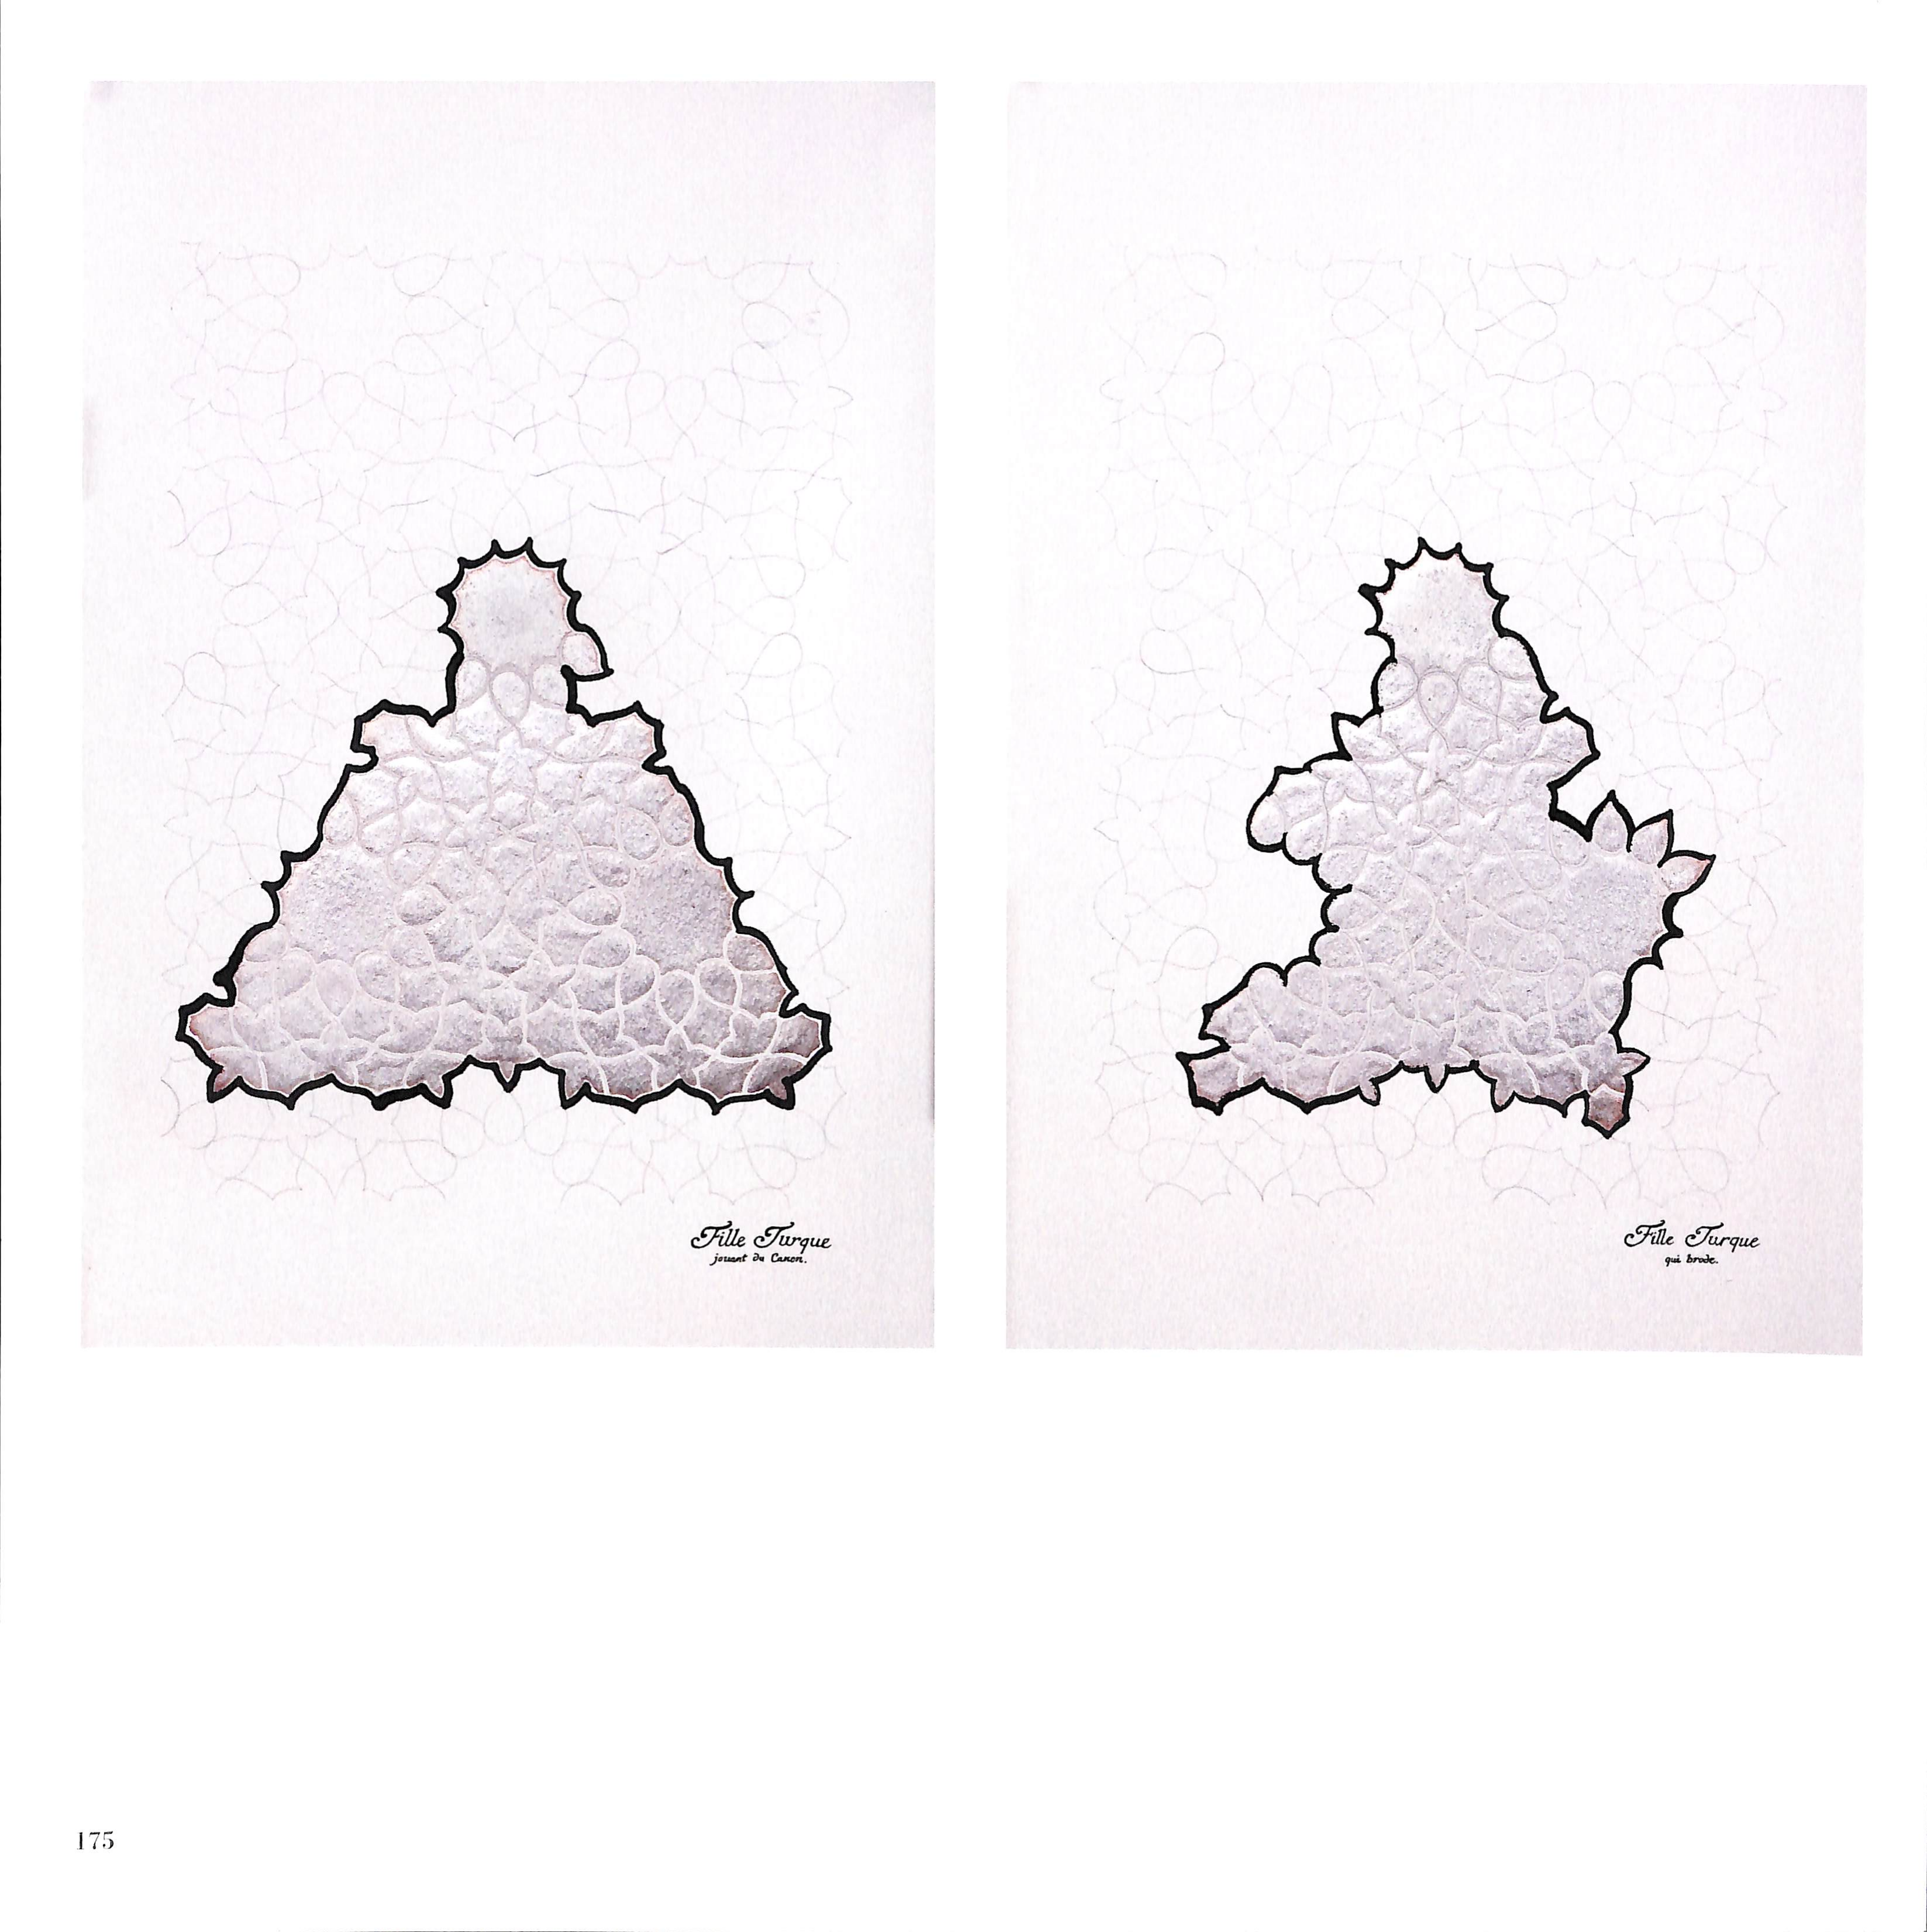 Fille Turque
jouant du Canon.
Fille Turque
qui brode.
175